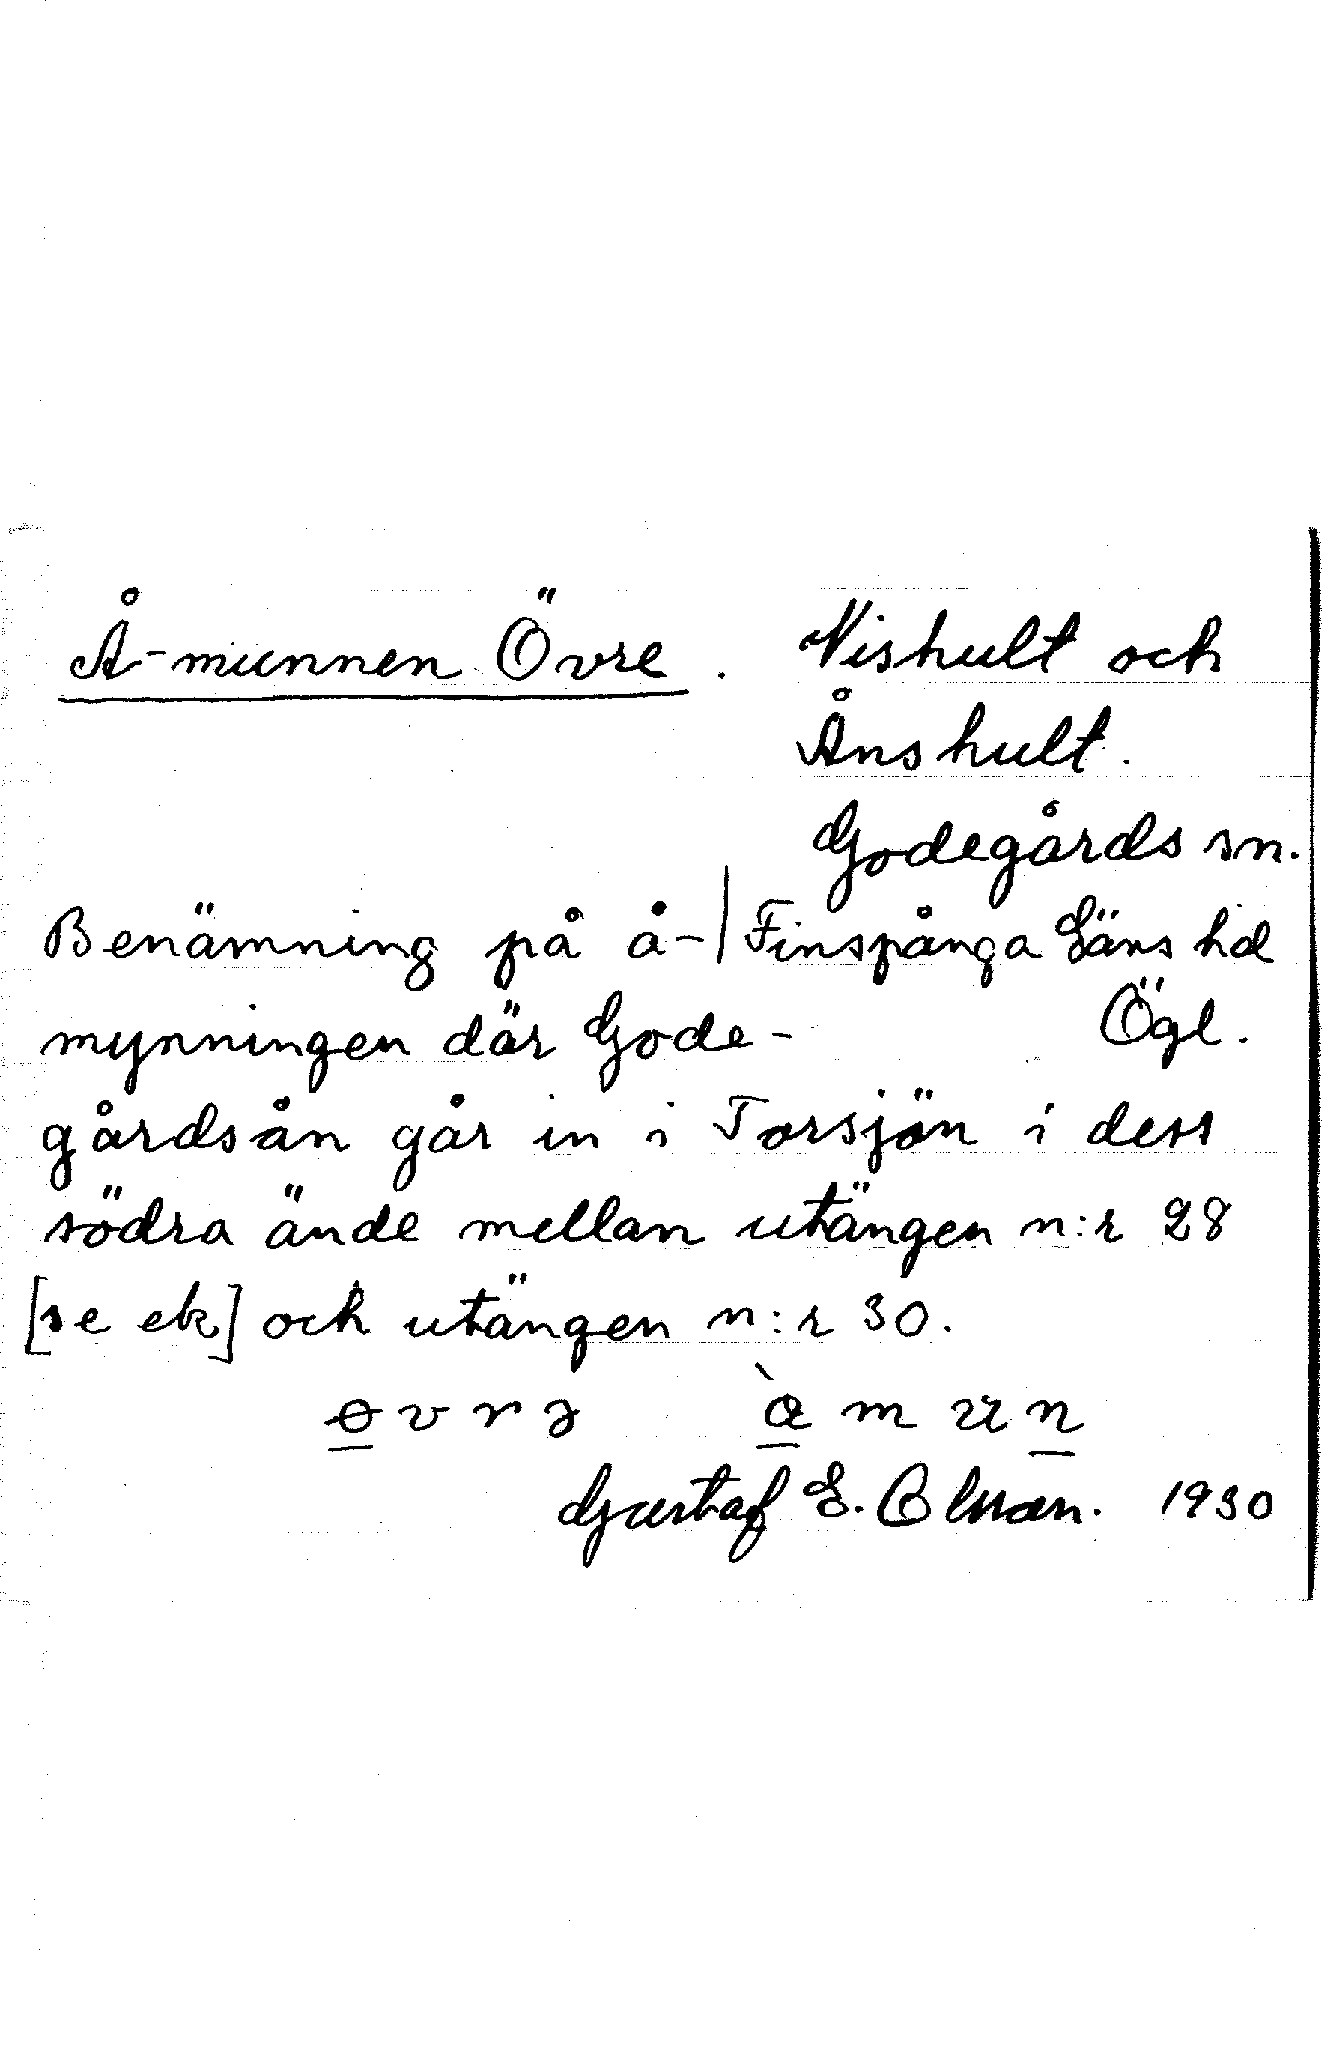 Å-munnen Övre. Nishult och
Ånshult.
Godegårds sn.
Benämning på å-| Finspånga Läns hd
mynningen där Gode- Ögl.
gårdsån går in i Torsjön i dess
södra ände mellan utängen n:r 28
[se ek] och utängen n:r 30.
Gustaf E. Olsson. 1930